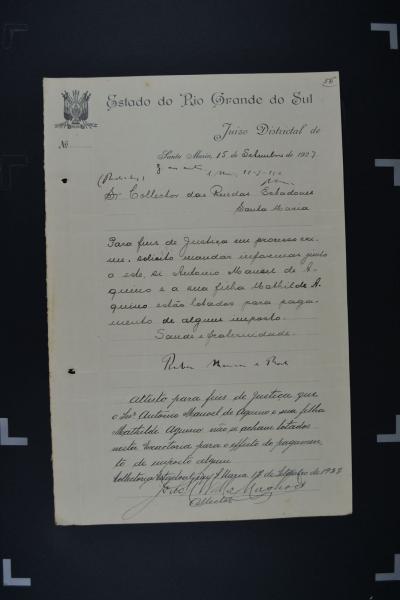 56
Estado do Rio Grande do Sul
Juizo Districtal de
Nº
Santa Maria, 15 de Setembro de 1927
Sr Collector das Rendas Estadoaes
Santa Maria
Para fins de Justiça em processo cri-
me, solicito mandar informar junto
a este, si Antonio Manoel de A-
quino e a sua filha Mathilde A-
quino estão lotados para paga-
mento de algum imposto.
Saude e fraternidade.
Attesto para fins de Justiça que
o Snr. Antônio Manoel de Aquino e sua filha
Mathilde Aquino não se acham lotados
nesta Exactoria para o effeito de pagamen-
to de imposto algum
Maria 17 de Setembro de 1927
Collector